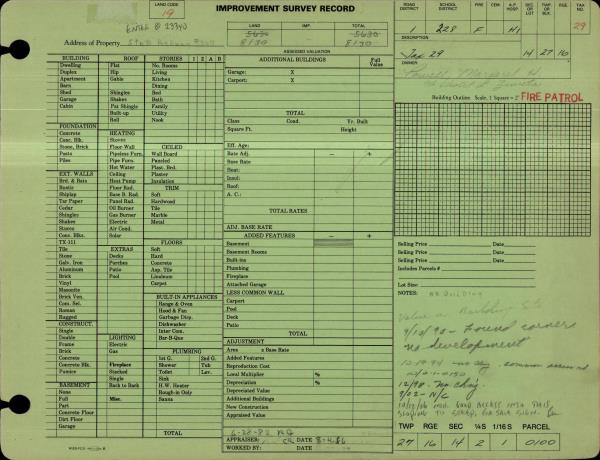 LAND CODE
19
IMPROVEMENT SURVEY RECORD
LAND IMP. TOTAL
5630 5630
8130 8130
ASSESSED VALUATION
ROAD DISTRICT SCHOOL DISTRICT FIRE CEM. A.P. HOSP. SEC. OR LOT TWP. OR BLK. RGE. TAX NO.
228 F H1 29
DESCRIPTION
Tax 29 14 27 16
OWNER
Margaret H.
Address of Property
FIRE PATROL
Building Outline: Scale, 1 Square =
BUILDING ROOF STORIES 1 2 A B
Dwelling Flat No. Rooms
Duplex Hip Living
Apartment Gable Kitchen
Barn Dining
Shed Shingles Bed
Garage Shakes Bath
Cabin Pat Shingle Family
Built-up Utility
Roll Nook
FOUNDATION
Concrete HEATING
Conc. Blk. Stoves CEILED
Stone, Brick Floor-Wall Wall Board
Posts Pipeless Furn. Paneled
Piles Pipe Furn. Plast. Brd.
Hot Water Plaster
EXT. WALLS Ceiling Insulation
Brd. & Bats Heat Pump TRIM
Rustic Floor Rad. Soft
Shiplap Base B. Rad. Hardwood
Tar Paper Panel Rad. Tile
Cedar Oil Burner Marble
Shingles Gas Burner Metal
Shakes Electric
Stucco Air Cond.
Conc. Blks. Solar FLOORS
TX-111 Soft
Tile EXTRAS Hard
Stone Decks Concrete
Galv. Iron Porches Asp. Tile
Aluminum Patio Linoleum
Brick Pool Carpet
Vinyl
Masonite BUILT-IN APPLIANCES
Brick Ven. Range & Oven
Com. Sel. Hood & Fan
Roman Garbage Disp.
Rugged Dishwasher
CONSTRUCT. Inter Com.
Single LIGHTING Bar-B-Que
Double
Frame Electric PLUMBING
Brick Gas 1st G. 2nd G.
Concrete Shower Tub
Concrete Blk. Fireplace Toilet Lav.
Pumice Stacked Sink
Single H.W. Heater
BASEMENT Back to Back Rough-in Only
None Sauna
Part
Full Misc.
Concrete Floor
Dirt Floor
Garage TOTAL
ADDITIONAL BUILDINGS Full Value
Garage: X
Carport: X
TOTAL
Class Cond. Yr. Built
Square Ft. Height
Eff. Age:
Rate Adj. - +
Base Rate
Heat:
Insul:
Roof:
A. C.:
TOTAL RATES
ADJ. BASE RATE
ADDED FEATURES - +
Basement
Basement Rooms
Built-ins
Plumbing
Fireplace
Attached Garage
LESS COMMON WALL
Carport
Pool
Deck
Patio
TOTAL
ADJUSTMENT
Area x Base Rate
Added Features
Reproduction Cost
Local Multiplier %
Depreciation %
Depreciated Value
Additional Buildings
New Construction
Appraised Value
6-28-82 RG
APPRAISER: CR DATE 8-4-86
WORKED BY: DATE
Selling Price Date
Selling Price Date
Selling Price Date
Includes Parcels #
Lot Size:
NOTES: no building
9/13/90 - Found corners
no development
12/98 - No Chg
9/02 - N/C
TWP RGE SEC ¼S 1/16 S PARCEL
27 16 14 2 1 0100